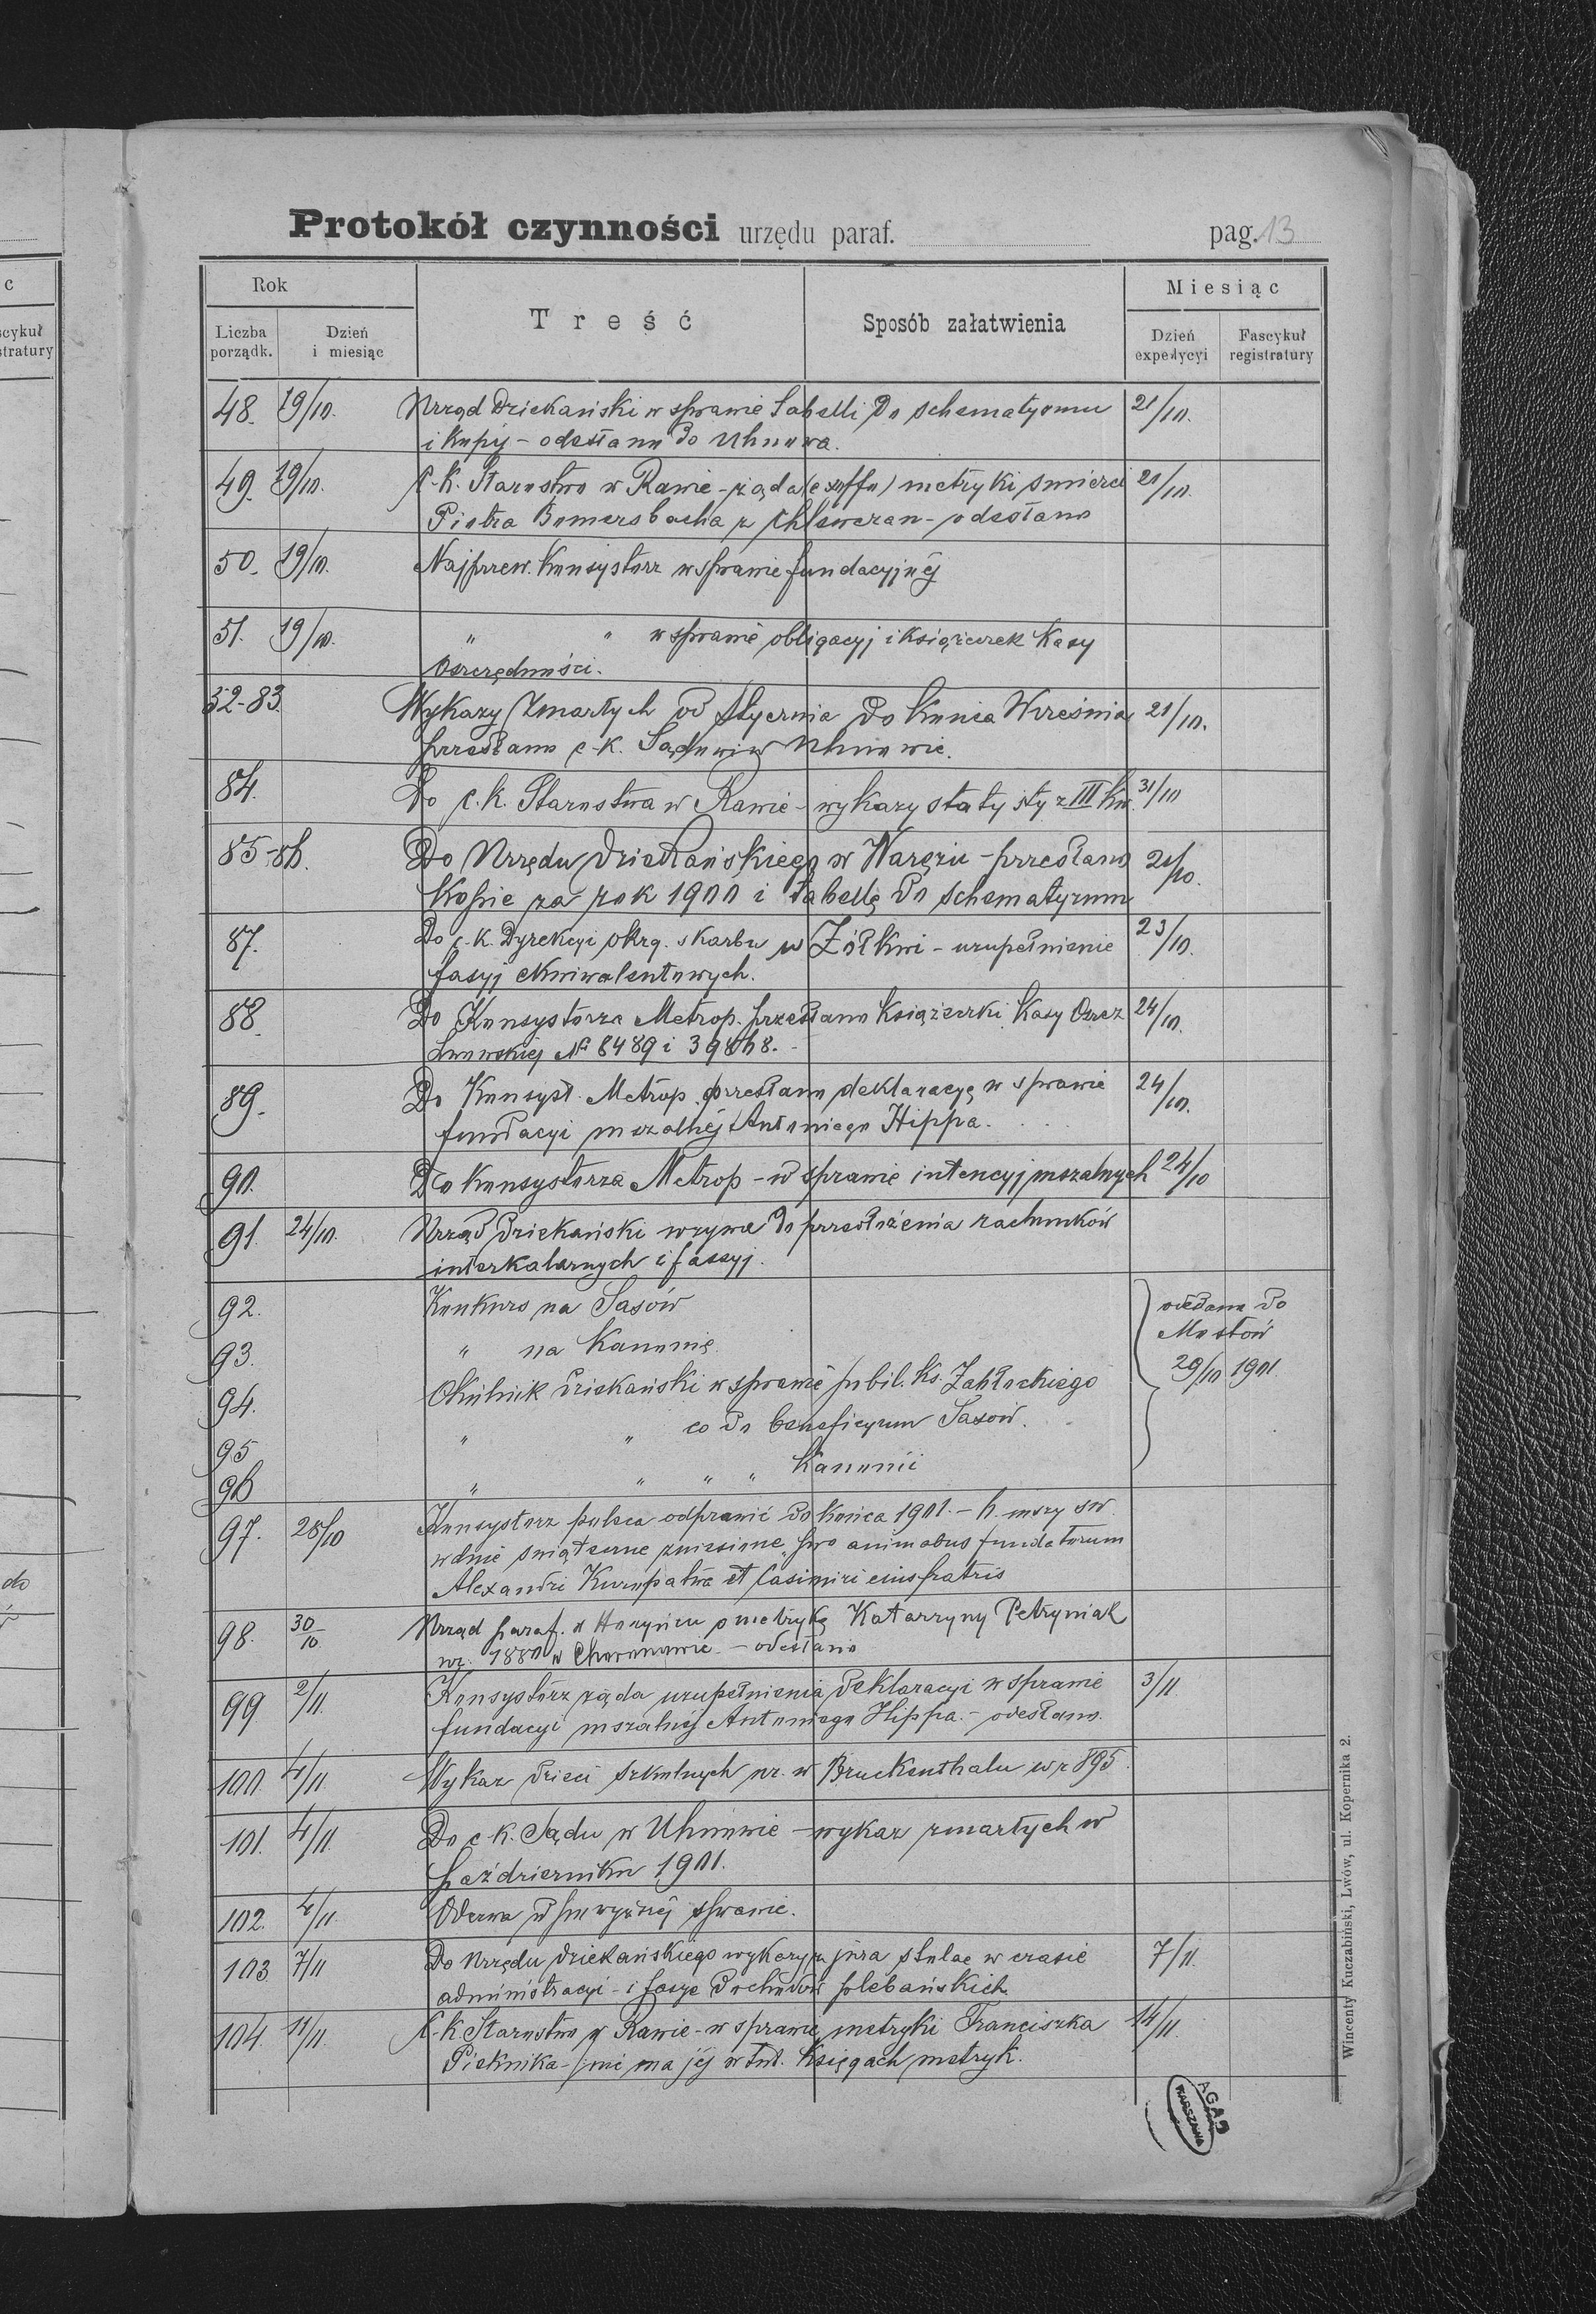 Protokół czynności urzędu paraf. pag. 13
Rok Treść Sposób załatwienia Miesiąc
Liczba porządk. Dzień i miesiąc Dzień expedycyi Fascykuł registratury
48. 19/10. Urząd Dziekański w sprawie Tabelli do schematyzmu 21/10.
i kopij – odesłano do Uhnowa.
49. 19/10. C. k. Starostwo w Rawie – żąda (ex offo) metryki śmierci 21/10.
Piotra Bomersbacha z – odesłano
50. 19/10. Najprzew. Konsystorz w sprawie fundacyjnéj
51. 19/10. " " w sprawie obligacyj i książeczek Kasy
Oszczędności.
52-83. Wykazy Zmarłych od Stycznia do końca Września 21/10.
przesłano c. k. Sądowi w Uhnowie.
84. Do c. k. Starostwa w Rawie – wykazy statysty z III kw. 31/10
85-86. Do Urzędu dziekańskiego w Warężu – przesłano 21/10.
Kopie za rok 1900 i tabellę do schematyzmu
87. Do c. k. Dyrekcyi okrg. skarbu w Żółkwi – uzupełnienie 23/10.
fasyj ekwiwalentowych.
88. Do Konsystorza Metrop. przesłano książeczki Kasy Oszcz 24/10.
Lwowskiej № 8489 i 39868. –
89. Do Konsyst. Metrop. przesłano deklaracyę w sprawie 24/10.
fundacyi mszalnéj Antoniego Hippa.
90. Do Konsystorza Metrop – w sprawie intencyj mszalnych 24/10
91. 24/10. Urząd dziekański wzywa do przedłożenia rachunków
interkalarnych i fassyj.
92. Konkurs na Sasów oddano do
93. " na Kanonię. Mostów
94. Okólnik dziekański w sprawie jubil. ks. Zabłockiego 29/10 1901.
95 " " co do beneficyum Sasów.
96 " " " " Kanonii
97. 28/10 Konsystorz poleca odprawić do końca 1901. – 6. mszy św.
w dnie świąteczne zniesione „pro animabus fundatorum
Alexandri Kuropatwa et Casimiri eius fratris
98. 30/10. Urząd paraf. w Horyńcu o metrykę Katarzyny Petryniak
ur. 1880 w – odesłano
99 2/11. Konsystorz żąda uzupełnienia deklaracyi w sprawie 3/11.
fundacyi mszalnéj Antoniego Hippa. – odesłano.
100. 4/11. Wykaz dzieci szkolnych ur. w Bruckenthalu w r 895.
101. 4/11. Do c. k. Sądu w Uhnowie – wykaz zmarłych w
październiku 1901.
102. 4/11. Odezwa w powyższéj sprawie.
103 7/11 Do Urzędu dziekańskiego wykazy za jura stolae w czasie 7/11.
administracyi – i fasye dochodów plebańskich
104. 11/11. C. k. Starostwo w Rawie – w sprawie metryki Franciszka 14/11.
Pieknika – nié ma jéj w tut. księgach metryk.
AGAD
WARSZAWA
Wincenty Kuczabiński, Lwów, ul. Kopernika 2.
c
scykuł
stratury
do